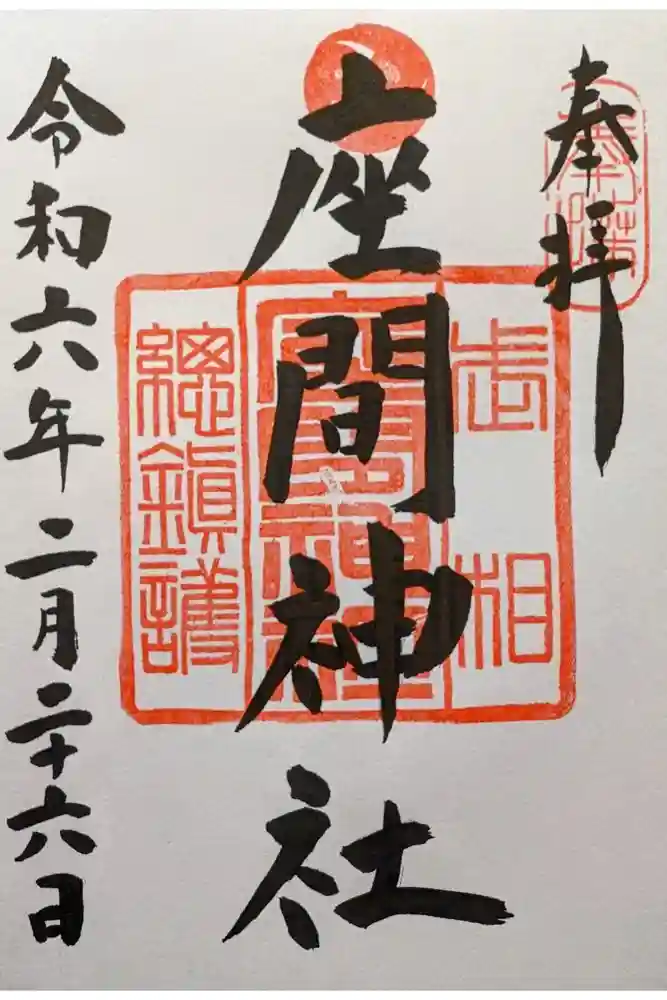 奉拝
奉拝
武相
座間神社
座間神社
總鎮護
令和六年二月二十六日